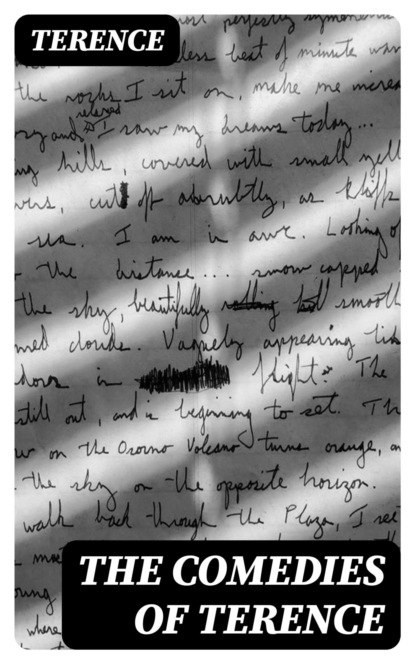 TERENCE
most perfectly symmetrical
less beat of minute wav
the rocks I sit on, make me increa
relaxed
sry and I saw my dreams today...
ng hills, covered with small yell
wers, cut off abruptly, as kliffs
sea. I am in awe. Looking o
the distance... snow capped
the sky, beautifully smooth
med clouds. Vaguely appearing lik
dove in flight. The
still out, and is beginning to set. Th
w on the Osorno Volcano turns orange, an
the sky on the opposite horizon.
walk back through the Plaza, I see
mo
THE COMEDIES
young
OF TERENCE
where